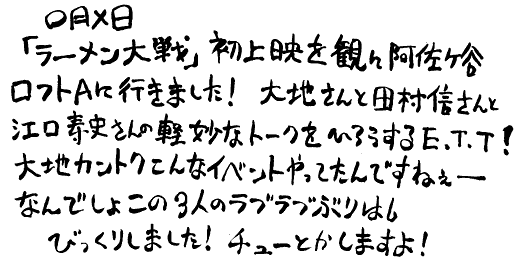 〇月×日
「ラーメン大戦」初上映を観に阿佐ヶ谷
ロフトAに行きました! 大地さんと田村信さんと
江口寿史さんの軽妙なトークをひろうするE.T.T!
大地カントクこんなイベントやってたんですねぇー
なんでしょこの3人のラブラブぶりは!
びっくりしました! チューとかしますよ!